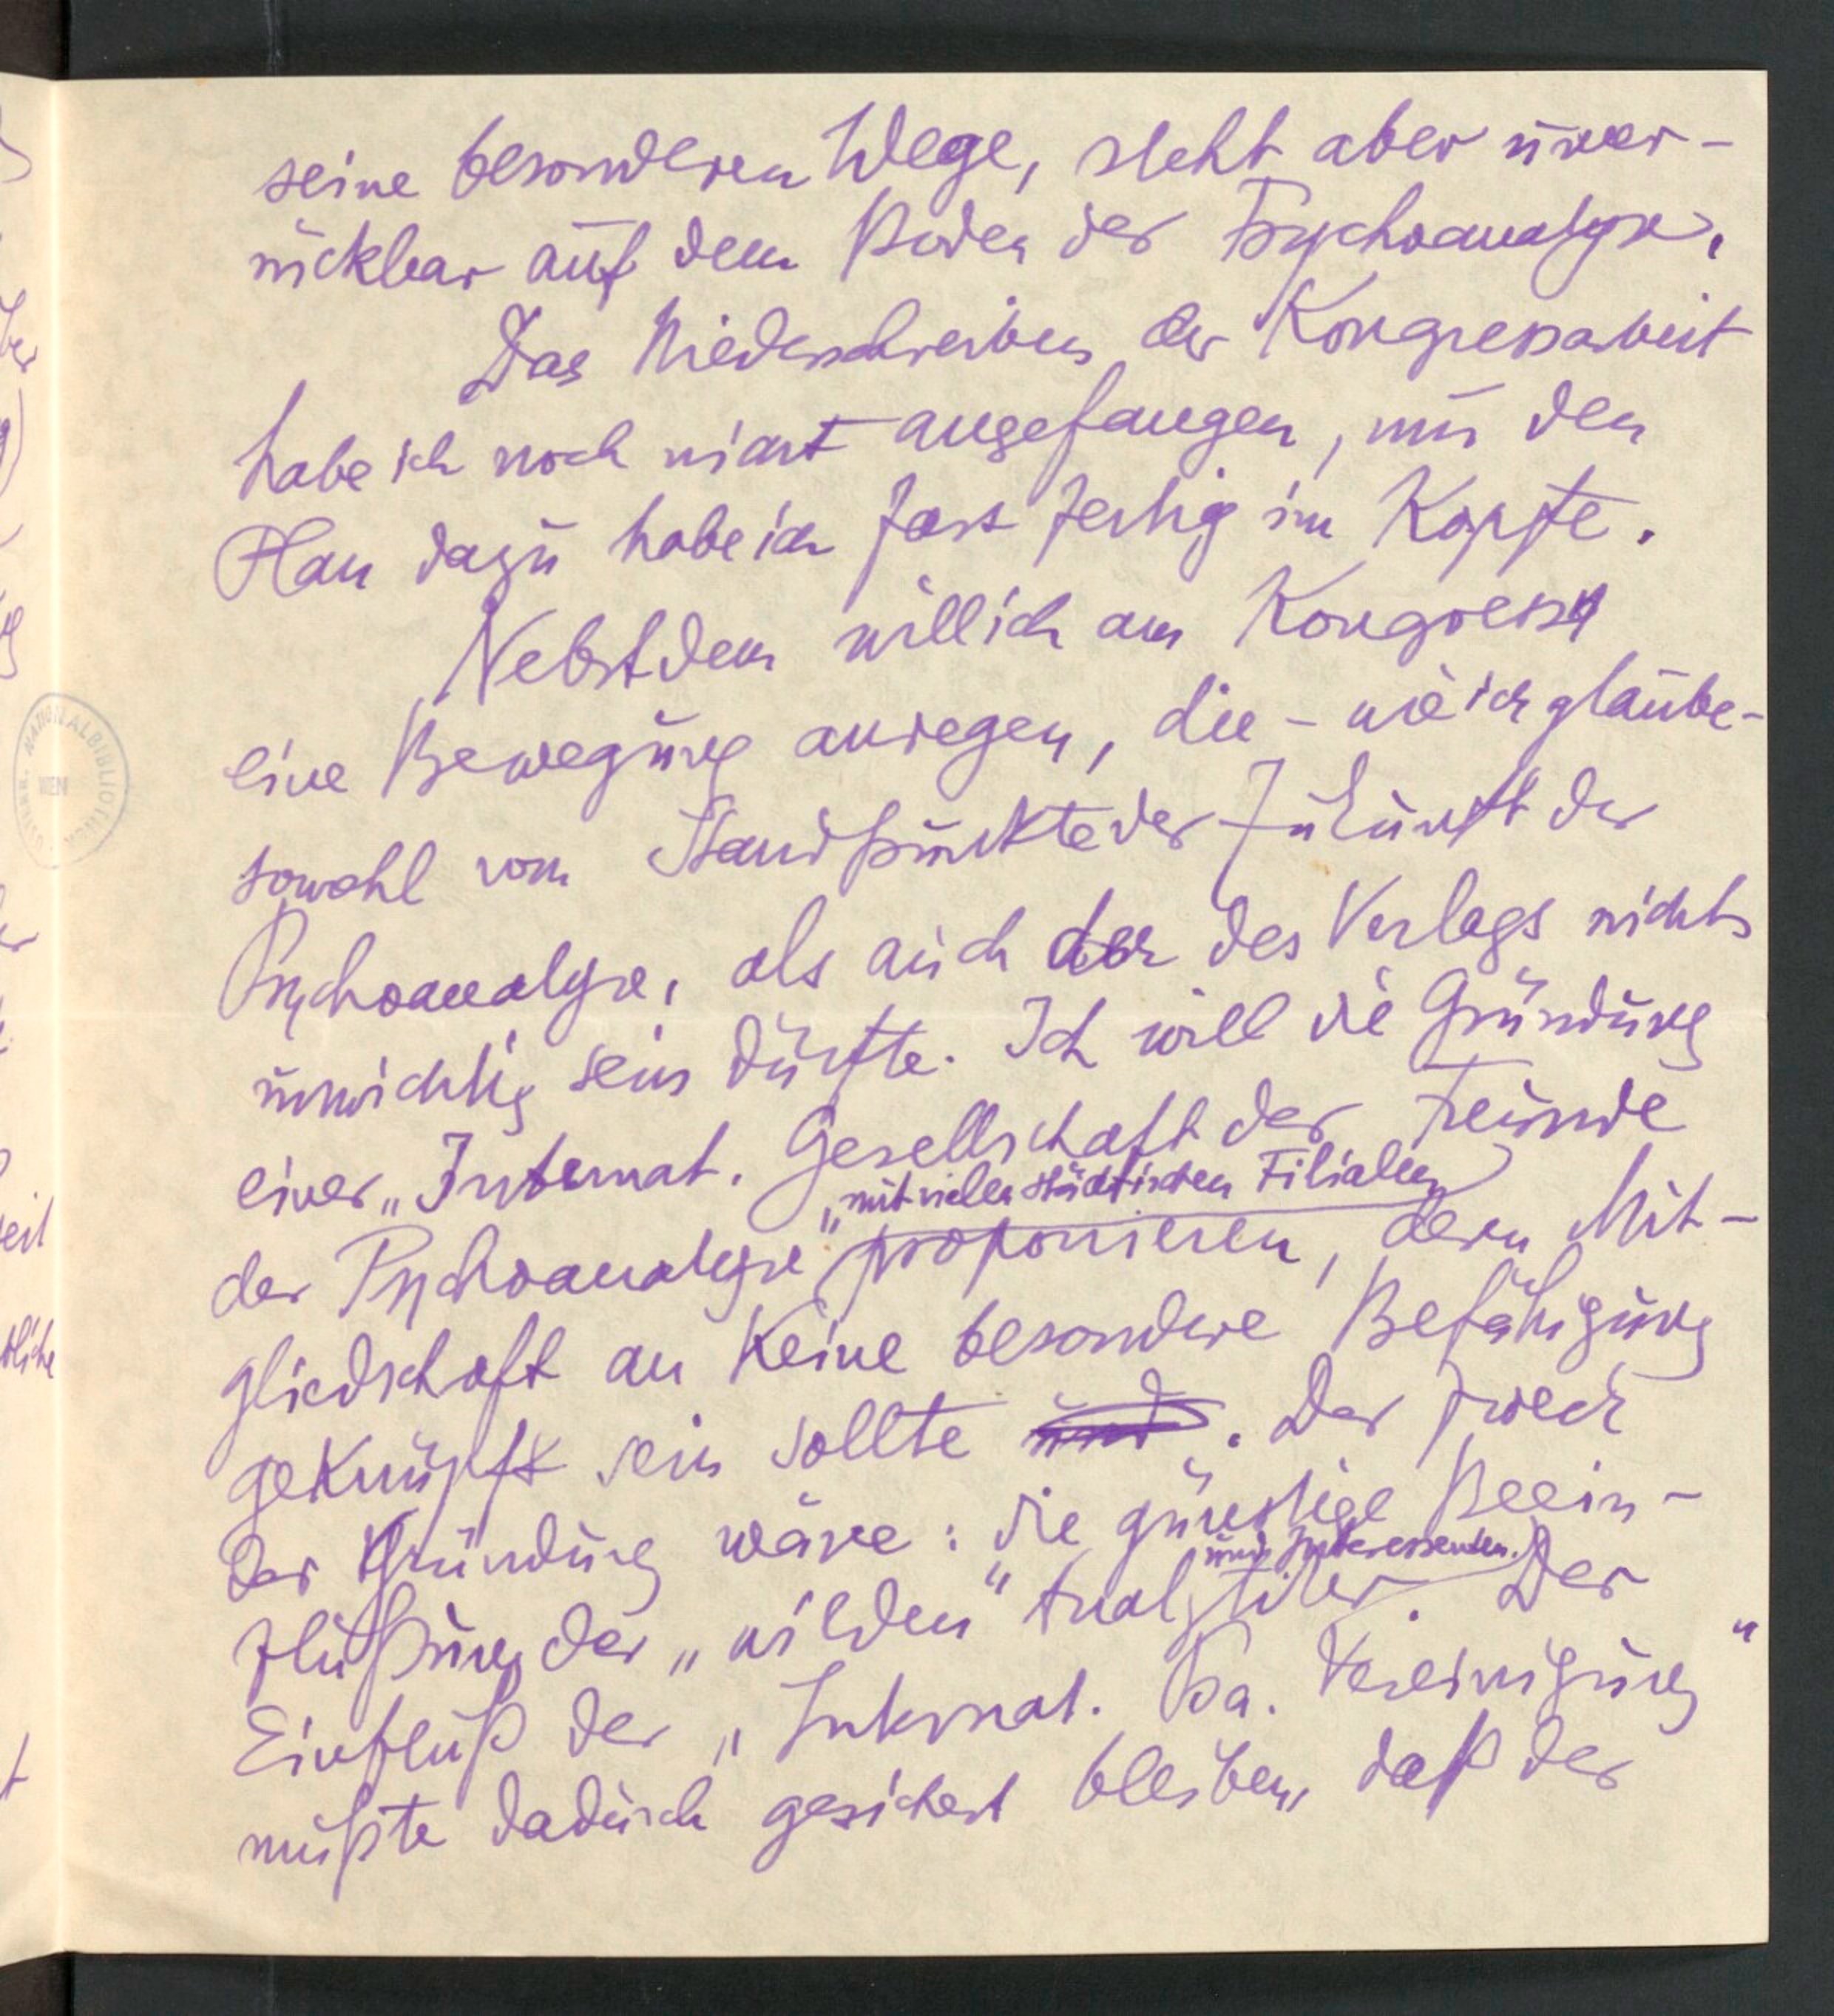 seine besonderen Wege, steht aber unver-
rückbar auf dem Boden der Psychoanalyse.
Das Niederschreiben der Kongressarbeit
habe ich noch nicht angefangen, nur den
Plan dazu habe ich fast fertig im Kopfe.
Nebstdem will ich am Kongress
eine Bewegung anregen, die – wie ich glaube –
sowohl vom Standpunkte der Zukunft der
Psychoanalyse, als auch der des Verlags nichts
unwichtig sein dürfte. Ich will die Gründung
einer „Internat. Gesellschaft der Freunde
„mit vielen städtischen Filialen
der Psychoanalyse" proponieren, deren Mit-
gliedschaft an keine besondere Befähigung
geknüpft sein sollte und. Der Zweck
der Gründung wäre: die günstige Beein-
und Interessenten.
flußung der „wilden" Analytiker. Der
Einfluß der „Internat. Psa. Vereinigung"
müßte dadurch gesichert bleiben, daß der
NATIONALBIBLIOTHEK
WIEN